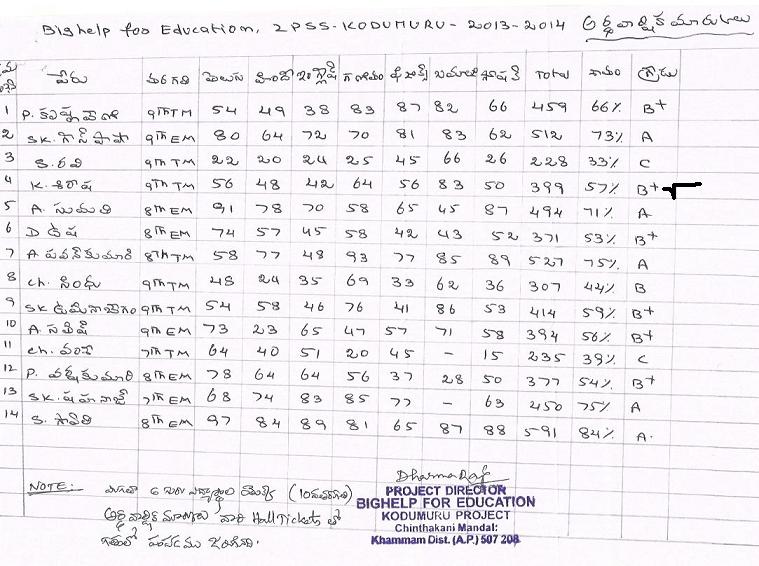 Bighelp for Education, ZPSS-KODUMURU-2013-2014 అర్థవార్షిక మారుకులు
పేరు తరగతి తెలుగు హిందీ ఇంగ్లీష్ గణితం సోషల్ TOTAL శాతం గ్రేడు
1 P. 9th TM 54 49 38 83 87 82 66 459 66% B+
2 SK. 9th EM 80 64 72 70 81 83 62 512 73% A
3 S. రవి 9th TM 22 20 24 25 45 66 26 228 33% C
4 K. శిరీష 9th TM 56 48 42 64 56 83 50 399 57% B+
5 A. సుమతి 8th EM 91 78 70 58 65 45 87 494 71% A
6 D ఉష 8th EM 74 57 45 58 42 43 52 371 53% B+
7 A పవన్ కుమారి 8th TM 58 77 48 93 77 85 89 527 75% A
8 Ch. సింధు 9th TM 48 24 35 69 33 62 36 307 44% B
9 SK 9th TM 54 58 46 76 41 86 53 414 59% B+
10 A. 9th EM 73 23 65 47 57 71 58 394 56% B+
11 Ch. వంశీ 7th TM 64 40 51 20 45 - 15 235 39% C
12 P. 8th EM 78 64 64 56 37 28 50 377 54% B+
13 SK. 7th EM 68 74 83 85 77 - 63 450 75% A
14 S. 8th EM 97 84 89 81 65 87 88 591 84% A.
NOTE: మిగతా 6 (10వతరగతి)
వారి Hall Tickets లో
జరిగినది.
DharmaRaj
PROJECT DIRECTOR
BIGHELP FOR EDUCATION
KODUMURU PROJECT
Chinthakani Mandal:
Khammam Dist. (A.P.) 507 208